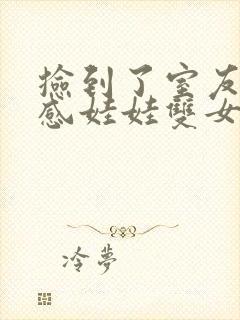 撿到了室友
感娃娃雙女
冷夢